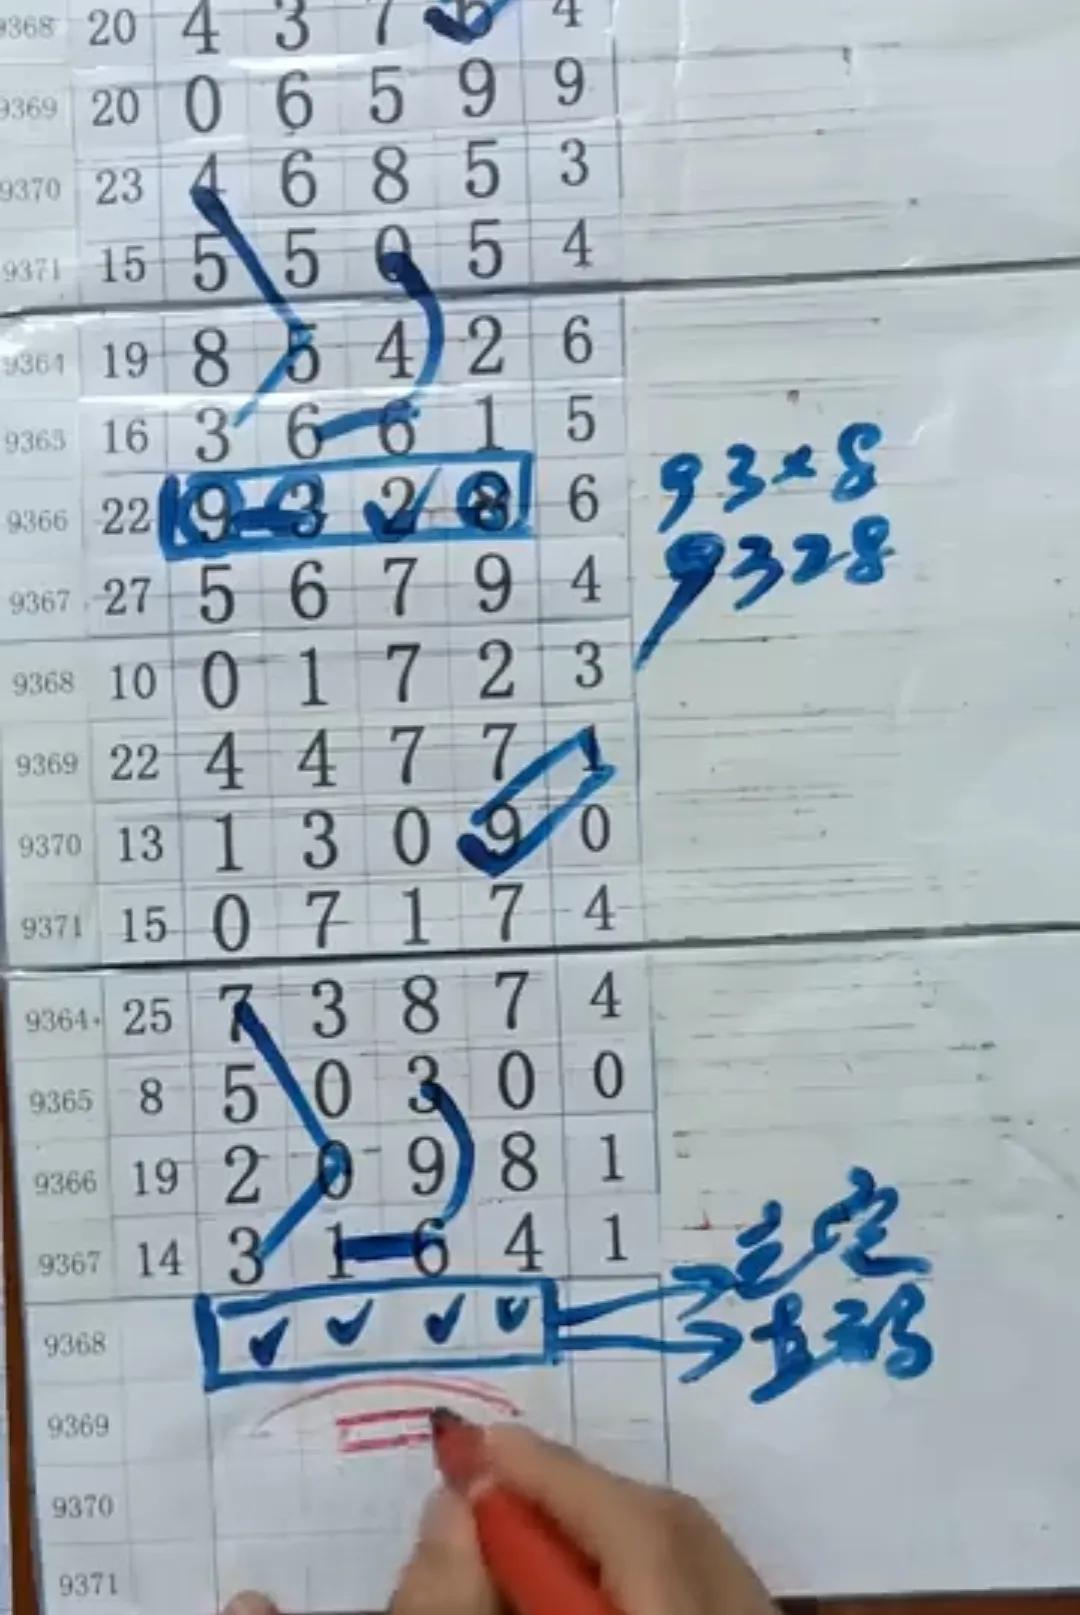 9368 20 4 3 7 6 4
9369 20 0 6 5 9 9
9370 23 4 6 8 5 3
9371 15 5 5 0 5 4
9364 19 8 5 4 2 6
9365 16 3 6 6 1 5
9366 22 9 3 2 8 6 93×8
9367 27 5 6 7 9 4 9328
9368 10 0 1 7 2 3
9369 22 4 4 7 7 1
9370 13 1 3 0 9 0
9371 15 0 7 1 7 4
9364 25 7 3 8 7 4
9365 8 5 0 3 0 0
9366 19 2 0 9 8 1
9367 14 3 1 6 4 1
9368
9369
9370
9371